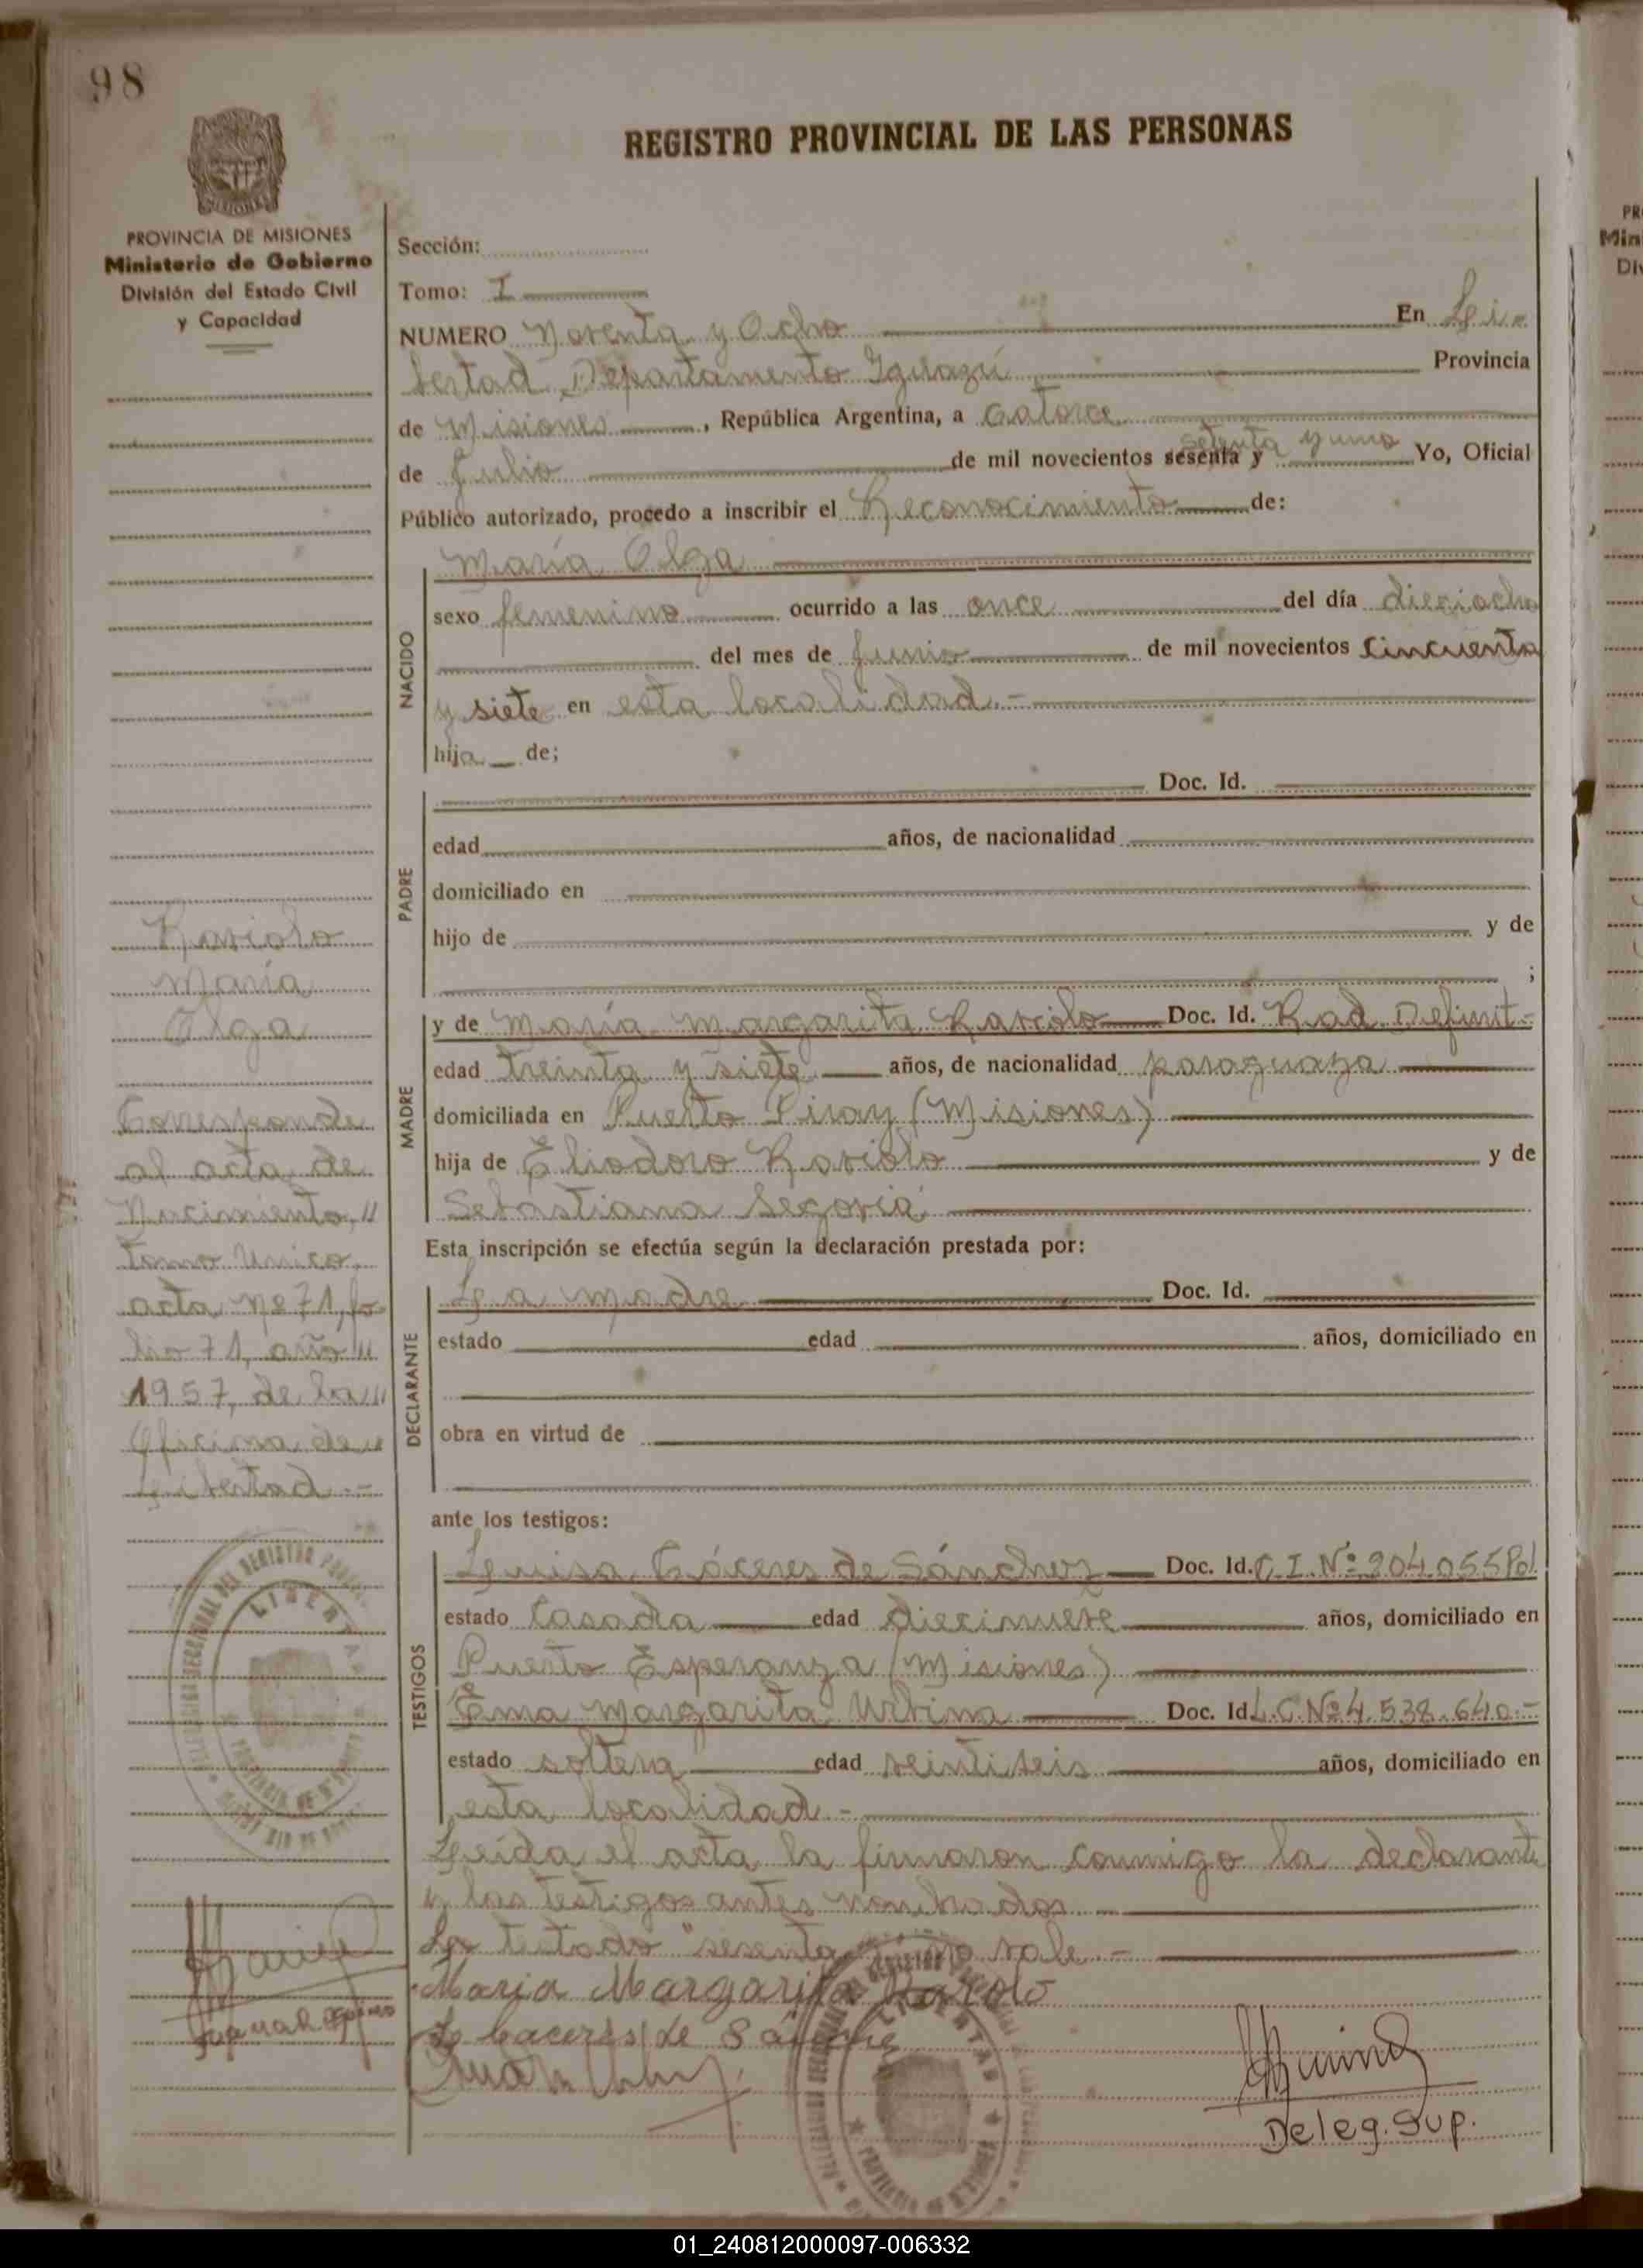 98
REGISTRO PROVINCIAL DE LAS PERSONAS
PROVINCIA DE MISIONES
Ministerio de Gobierno
División del Estado Civil
y Capacidad
Sección:
Tomo: I
NUMERO Noventa y Ocho En Li=
bertad Departamento Iguazú Provincia
de Misiones, República Argentina, a Catorce
setenta y uno
de Julio de mil novecientos sesenta y Yo, Oficial
Público autorizado, procedo a inscribir el Reconocimiento de:
María Olga
NACIDO
sexo femenino ocurrido a las once del día dieciocho
del mes de Junio de mil novecientos Cincuenta
y siete en esta localidad.-
hija de;
PADRE
Doc. Id.
edad años, de nacionalidad
domiciliado en
hijo de y de
;
MADRE
y de María Margarita Doc. Id. Rad. Definit.-
edad treinta y siete años, de nacionalidad paraguaya
domiciliada en Puerto Piray (Misiones)
hija de Eliodoro y de
Sebastiana Segovia
Esta inscripción se efectúa según la declaración prestada por:
DECLARANTE
La madre Doc. Id.
estado edad años, domiciliado en
obra en virtud de
ante los testigos:
TESTIGOS
Luisa Cáceres de Sánchez Doc. Id. C.I. Nº 204.055 Pol
estado Casada edad diecinueve años, domiciliado en
Puerto Esperanza (Misiones)
Ema Margarita Urbina Doc. Id. L.C. Nº 4.538.640.-
estado soltera edad veintiseis años, domiciliado en
esta localidad.-
Leída el acta la firmaron conmigo la declarante
y los testigos antes nombrados.
Lo testado "sesenta" no vale.-
María Margarita
L Caceres de Sánchez
Deleg. Sup.
María
Olga
Corresponde
al acta de
Nacimiento, "
tomo Unico,
acta Nº 71, fo
lio 71, año "
1957, de la "
Oficina de "
Libertad.-
LIBERTAD
01_240812000097-006332